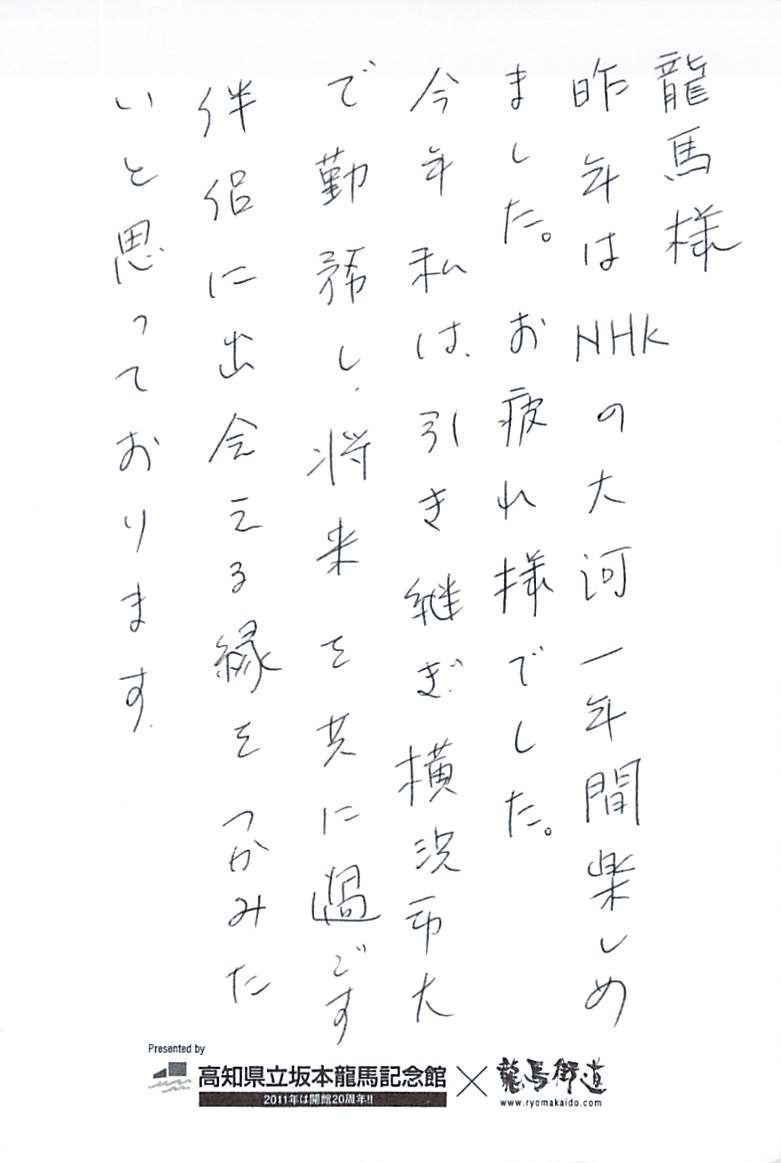 龍馬様
昨年はNHKの大河一年間楽しめ
ました。お疲れ様でした。
今年私は、引き継ぎ横浜市大
で勤務し、将来を共に過ごす
伴侶に出会える縁をつかみた
いと思っております。
Presented by
高知県立坂本龍馬記念館
2011年は開館20周年!!
×
龍馬街道
www.ryomakaido.com